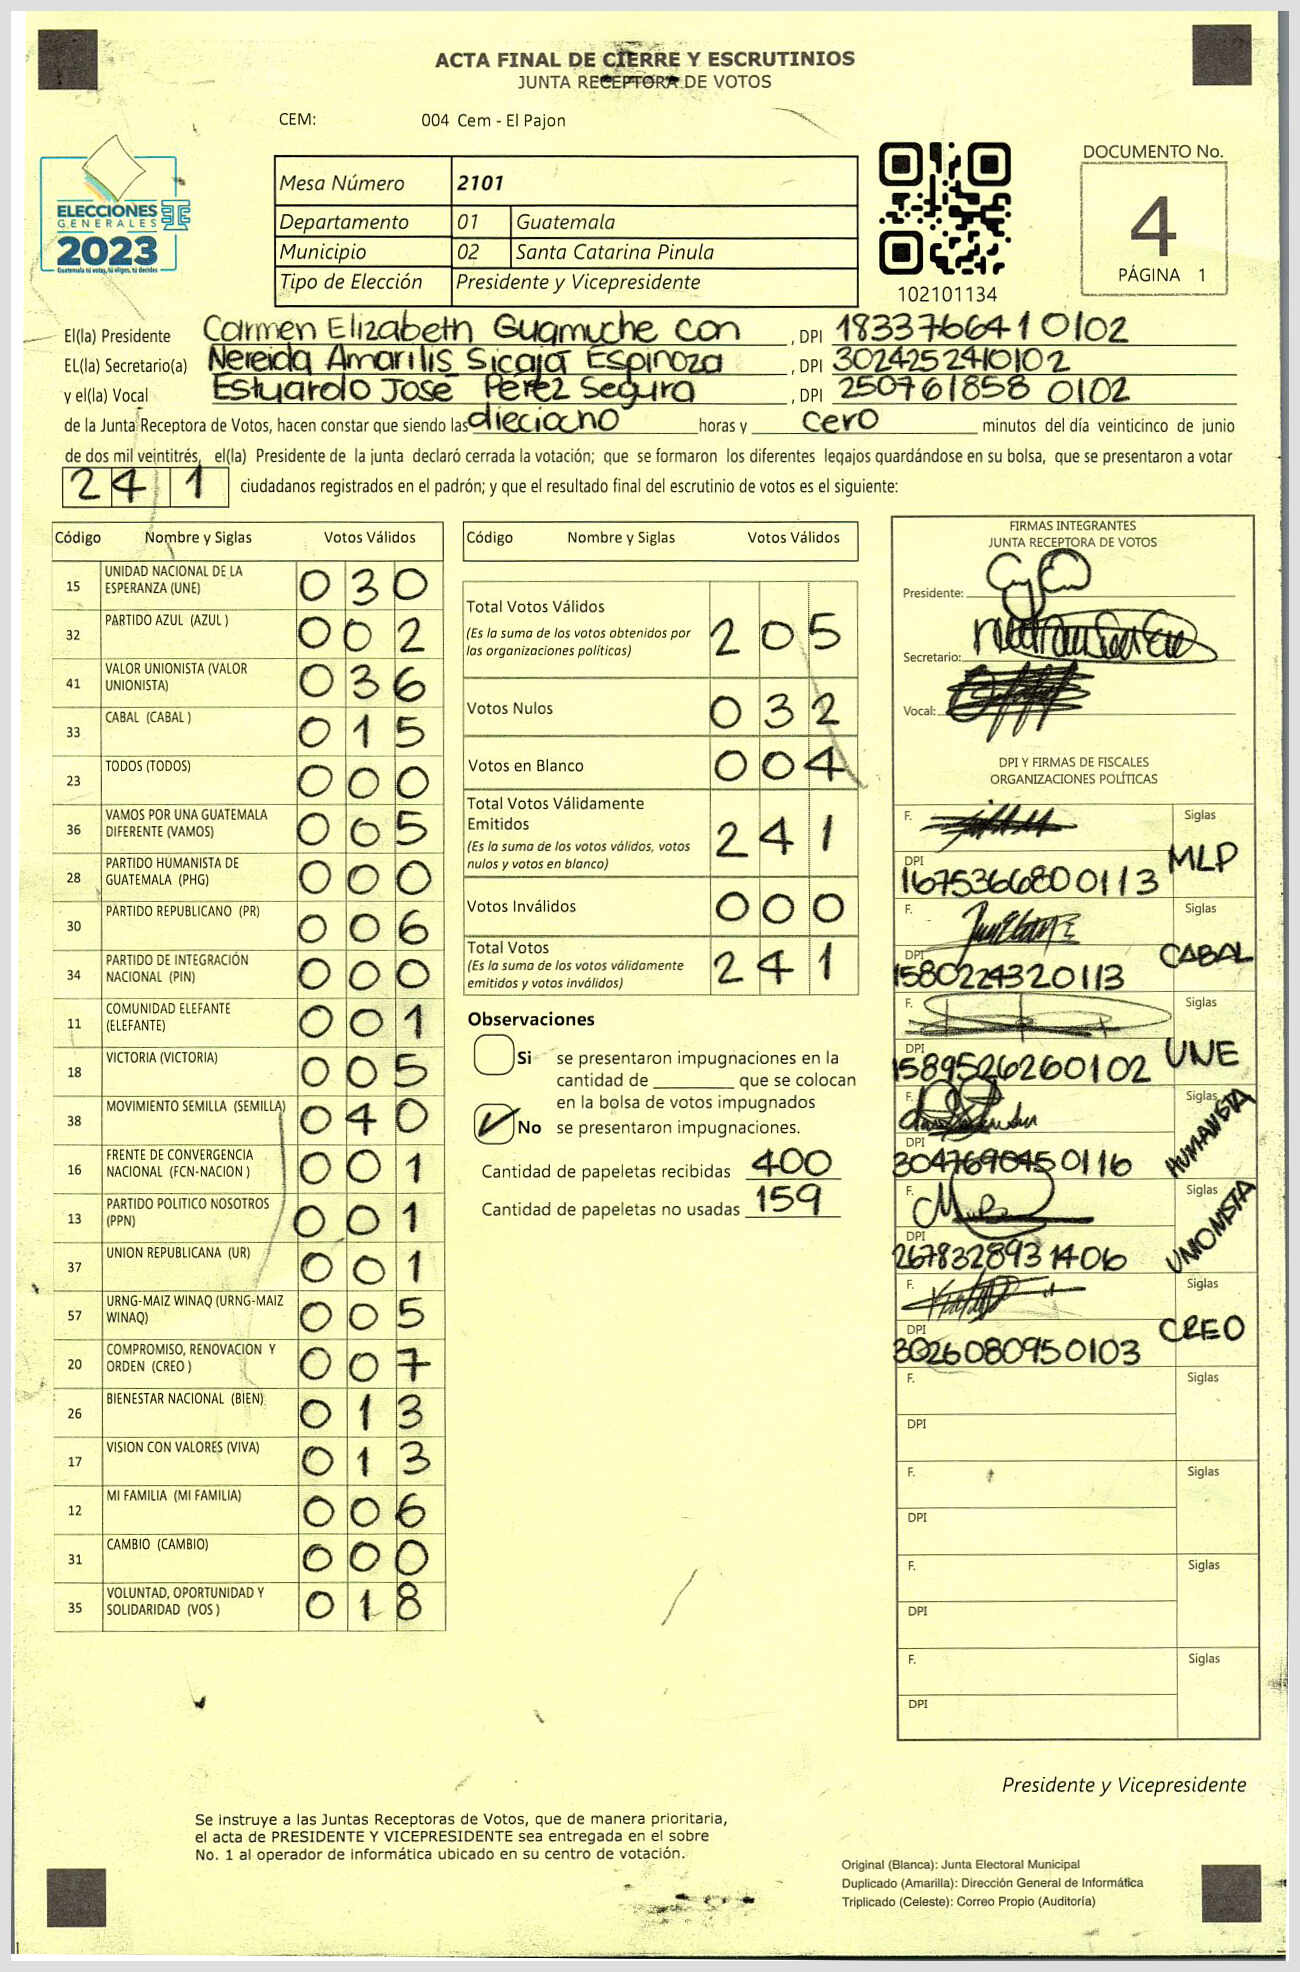 ACTA FINAL DE CIERRE Y ESCRUTINIOS
JUNTA RECEPTORA DE VOTOS
CEM: 004 Cem - El Pajon
ELECCIONES
GENERALES
2023
Guatemala tú votas, tú eliges, tú decides
Mesa Número 2101
Departamento 01 Guatemala
Municipio 02 Santa Catarina Pinula
Tipo de Elección Presidente y Vicepresidente
102101134
DOCUMENTO No.
4
PÁGINA 1
El(la) Presidente Carmen Elizabeth Guamuche Con , DPI 1833766410102
EL(la) Secretario(a) Nereida Amarilis Sicajá Espinoza , DPI 3024252410102
y el(la) Vocal Estuardo José Pérez Segura , DPI 250761858 0102
de la Junta Receptora de Votos, hacen constar que siendo las dieciocho horas y cero minutos del día veinticinco de junio
de dos mil veintitrés, el(la) Presidente de la junta declaró cerrada la votación; que se formaron los diferentes legajos guardándose en su bolsa, que se presentaron a votar
241 ciudadanos registrados en el padrón; y que el resultado final del escrutinio de votos es el siguiente:
Código Nombre y Siglas Votos Válidos
15 UNIDAD NACIONAL DE LA ESPERANZA (UNE) 030
32 PARTIDO AZUL (AZUL ) 002
41 VALOR UNIONISTA (VALOR UNIONISTA) 036
33 CABAL (CABAL ) 015
23 TODOS (TODOS) 000
36 VAMOS POR UNA GUATEMALA DIFERENTE (VAMOS) 005
28 PARTIDO HUMANISTA DE GUATEMALA (PHG) 000
30 PARTIDO REPUBLICANO (PR) 006
34 PARTIDO DE INTEGRACIÓN NACIONAL (PIN) 000
11 COMUNIDAD ELEFANTE (ELEFANTE) 001
18 VICTORIA (VICTORIA) 005
38 MOVIMIENTO SEMILLA (SEMILLA) 040
16 FRENTE DE CONVERGENCIA NACIONAL (FCN-NACION ) 001
13 PARTIDO POLITICO NOSOTROS (PPN) 001
37 UNION REPUBLICANA (UR) 001
57 URNG-MAIZ WINAQ (URNG-MAIZ WINAQ) 005
20 COMPROMISO, RENOVACION Y ORDEN (CREO ) 007
26 BIENESTAR NACIONAL (BIEN) 013
17 VISION CON VALORES (VIVA) 013
12 MI FAMILIA (MI FAMILIA) 006
31 CAMBIO (CAMBIO) 000
35 VOLUNTAD, OPORTUNIDAD Y SOLIDARIDAD (VOS ) 018
Código Nombre y Siglas Votos Válidos
Total Votos Válidos 205
(Es la suma de los votos obtenidos por
las organizaciones políticas)
Votos Nulos 032
Votos en Blanco 004
Total Votos Válidamente
Emitidos 241
(Es la suma de los votos válidos, votos
nulos y votos en blanco)
Votos Inválidos 000
Total Votos 241
(Es la suma de los votos válidamente
emitidos y votos inválidos)
Observaciones
Si se presentaron impugnaciones en la
cantidad de ________ que se colocan
en la bolsa de votos impugnados
No se presentaron impugnaciones.
Cantidad de papeletas recibidas 400
Cantidad de papeletas no usadas 159
FIRMAS INTEGRANTES
JUNTA RECEPTORA DE VOTOS
Presidente:
Secretario:
Vocal:
DPI Y FIRMAS DE FISCALES
ORGANIZACIONES POLÍTICAS
F. Siglas MLP
DPI 1675366800113
F. Siglas CABAL
DPI 1580224320113
F. Siglas UNE
DPI 1589526260102
F. Siglas HUMANISTA
DPI 3047690450116
F. Siglas UNIONISTA
DPI 2678328931406
F. Siglas CREO
DPI 3026080950103
F. Siglas
DPI
F. Siglas
DPI
F. Siglas
DPI
F. Siglas
DPI
Presidente y Vicepresidente
Se instruye a las Juntas Receptoras de Votos, que de manera prioritaria,
el acta de PRESIDENTE Y VICEPRESIDENTE sea entregada en el sobre
No. 1 al operador de informática ubicado en su centro de votación.
Original (Blanca): Junta Electoral Municipal
Duplicado (Amarilla): Dirección General de Informática
Triplicado (Celeste): Correo Propio (Auditoría)